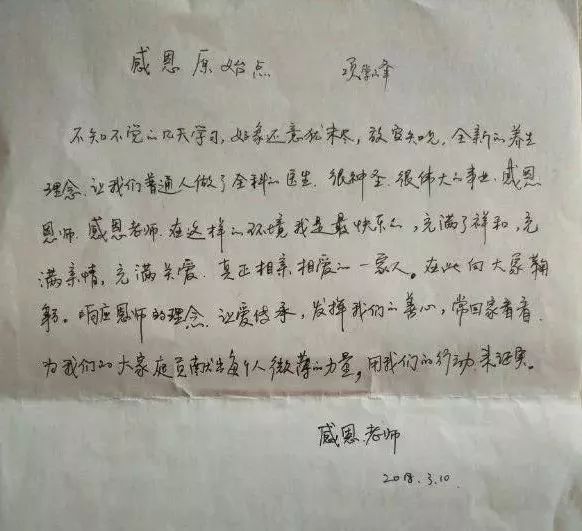 感恩原始点 项学峰
不知不觉的几天学习，好象还意犹未尽，放宽知见，全新的养生
理念，让我们普通人做了全科的医生，很神圣，很伟大的事业，感恩
恩师，感恩老师，在这样的环境我是最快乐的，充满了祥和，充
满亲情，充满关爱，真正相亲相爱的一家人。在此向大家鞠
躬。响应恩师的理念，让爱传承，发挥我们的善心，常回家看看，
为我们的大家庭贡献出每个人微薄的力量，用我们的行动来证实。
感恩老师
2018.3.10